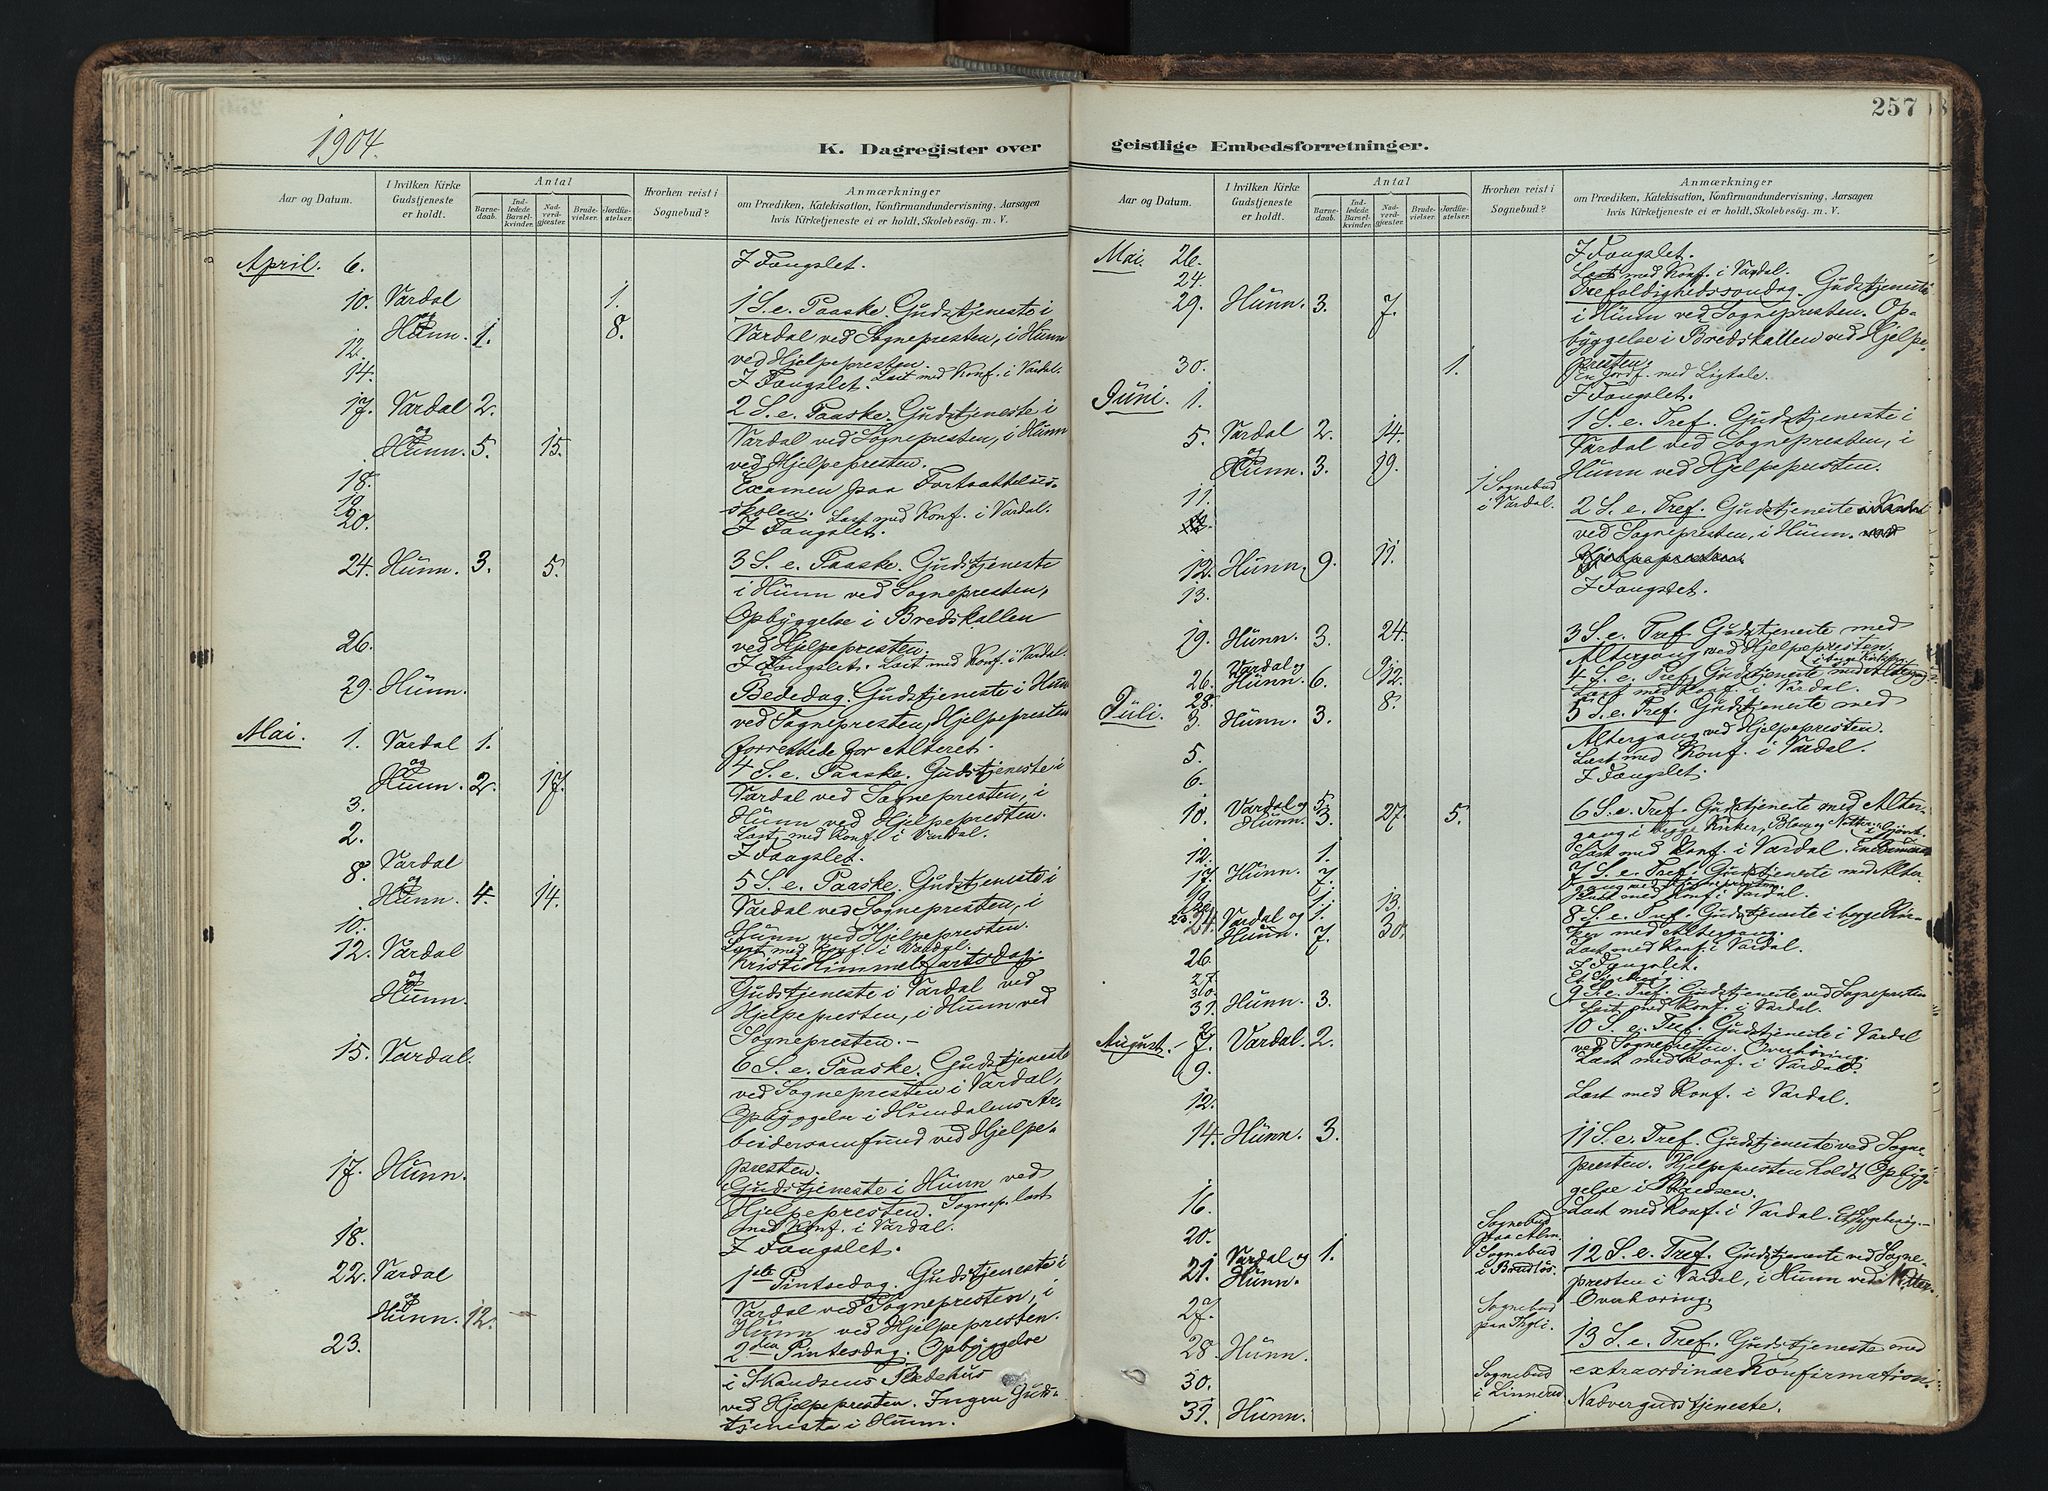 257
1904.
K. Dagregister over
geistlige Embedsforretninger.
Aar og Datum.
I hvilken Kirke Gudstjeneste er holdt.
Antal
Barnedaab.
Indledede Barselkvinder.
Nadverdgjester.
Brudevielser.
Jordfæstelser.
Hvorhen reist i Sognebud?
Anmærkninger
om Prædiken, Katekisation, Konfirmandundervisning, Aarsagen
hvis Kirketjeneste ei er holdt, Skolebesøg. m. V.
April. 6. I Fængslet.
10. Vardal 1. 1 S. e. Paaske. Gudstjeneste i
og Hunn. 1. 8. Vardal ved Sognepresten, i Hunn
12. ved Hjelpepresten.
14. I Fængslet. Læst med Konf. i Vardal.
17. Vardal 2. 2 S. e. Paaske. Gudstjeneste i
og Hunn. 5. 15. Vardal ved Sognepresten, i Hunn
ved Hjelpepresten.
18. Examen paa Fortsættelses-
19. skolen. Læst med Konf. i Vardal.
20. I Fængslet.
24. Hunn. 3. 5. 3 S. e. Paaske. Gudstjeneste
i Hunn ved Sognepresten,
Opbyggelse i Bredskallen
26. ved Hjelpepresten.
I Fængslet. Læst med Konf. i Vardal.
29. Hunn. Bededag. Gudstjeneste i Hunn
ved Sognepresten, Hjelpepresten
Mai. 1. Vardal 1. forrettede for Alteret.
og Hunn. 2. 17. 4 S. e. Paaske. Gudstjeneste i
Vardal ved Sognepresten, i
3. Hunn ved Hjelpepresten.
2. Læst med Konf. i Vardal.
I Fængslet.
8. Vardal
og Hunn. 4. 14. 5 S. e. Paaske. Gudstjeneste i
Vardal ved Sognepresten, i
10. Hunn ved Hjelpepresten.
Læst med Konf. i Vardal.
12. Vardal Kristi Himmelfartsdag.
og Hunn. Gudstjeneste i Vardal ved
Hjelpepresten, i Hunn ved
Sognepresten. –
15. Vardal. 6 S. e. Paaske. Gudstjeneste
ved Sognepresten i Vardal,
Opbyggelse i Hunndalens Ar-
beidersamfund ved Hjelpe-
17. Hunn. presten.
Gudstjeneste i Hunn ved
Hjelpepresten. Sognep. læst
med Konf. i Vardal.
18. I Fængslet.
22. Vardal 1ste Pintsedag. Gudstjeneste i
og Hunn. 12. Vardal ved Sognepresten, i
Hunn ved Hjelpepresten.
23. 2den Pintsedag. Opbyggelse
i Skandsens Bedehus
ved Hjelpepresten. Ingen Guds-
tjeneste i Hunn.
Aar og Datum.
I hvilken Kirke Gudstjeneste er holdt.
Antal
Barnedaab.
Indledede Barselkvinder.
Nadverdgjester.
Brudevielser.
Jordfæstelser.
Hvorhen reist i Sognebud?
Anmærkninger
om Prædiken, Katekisation, Konfirmandundervisning, Aarsagen
hvis Kirketjeneste ei er holdt, Skolebesøg. m. V.
Mai. 26. I Fængslet.
24. Læst med Konf. i Vardal.
29. Hunn. 3. 7. Trefoldighedssøndag. Gudstjeneste
i Hunn ved Sognepresten. Op-
byggelse i Bredskallen ved Hjelpe-
presten.
30. 1. En Jordf. med Ligtale.
Juni. 1. I Fængslet.
5. Vardal 2. 14. 1 S. e. Tref. Gudstjeneste i
Vardal ved Sognepresten, i
og Hunn. 3. 19. Hunn ved Hjelpepresten.
11. 1 Sognebud i Vardal.
2 S. e. Tref. Gudstjeneste
ved Sognepresten, i Hunn.
12. Hunn. 9. 11.
13. I Fængslet.
19. Hunn. 3. 24. 3 S. e. Tref. Gudstjeneste med
Altergang ved Hjelpepresten.
26. Vardal og Hunn. 6. 12. 4 S. e. Tref. Gudstjeneste med Altergang i begge Kirker.
28. Læst med Konf. i Vardal.
Juli. 3. Hunn. 3. 8. 5 S. e. Tref. Gudstjeneste med
Altergang ved Hjelpepresten.
5. Læst med Konf. i Vardal.
6. I Fængslet.
10. Vardal og 5. 6 S. e. Tref. Gudstjeneste med Alter-
Hunn. 3. 27. 5. gang i begge Kirker,
12. 1. Læst med Konf. i Vardal.
17. Hunn. 7. 7 S. e. Tref. Gudstjeneste med Alter-
gang ved Hjelpepresten.
1. 13. Læst med Konf. i Vardal.
24. Vardal og 1. 8 S. e. Tref. Gudstjeneste i begge Kir-
Hunn. 7. 30. ker med Altergang.
26. Læst med Konf. i Vardal.
27. I Fængslet.
30. Et Sygebesøg.
31. Hunn. 3. 9 S. e. Tref. Gudstjeneste ved Sognepresten
Læst med Konf. i Vardal.
August. 7. Vardal. 2. 10 S. e. Tref. Gudstjeneste i Vardal
ved Sognepresten. Overhøring.
9. Læst med Konf. i Vardal.
12. Læst med Konf. i Vardal.
14. Hunn. 3. 11 S. e. Tref. Gudstjeneste ved Sogne-
presten. Hjelpepresten holdt Opbyg-
gelse i
16. Læst med Konf. i Vardal. Et Sygebesøg. –
20. Sognebud paa Alm.
21. Vardal og Hunn. 1. Sognebud i 12 S. e. Tref. Gudstjeneste ved Sogne-
presten i Vardal, i Hunn ved
27. Sognebud paa Overhøring.
28. Hunn. 13 S. e. Tref. Gudstjeneste med
30. Sognebud i Linnerud. extraordinær Konfirmation.
31. Hunn. Nadvergudstjeneste.